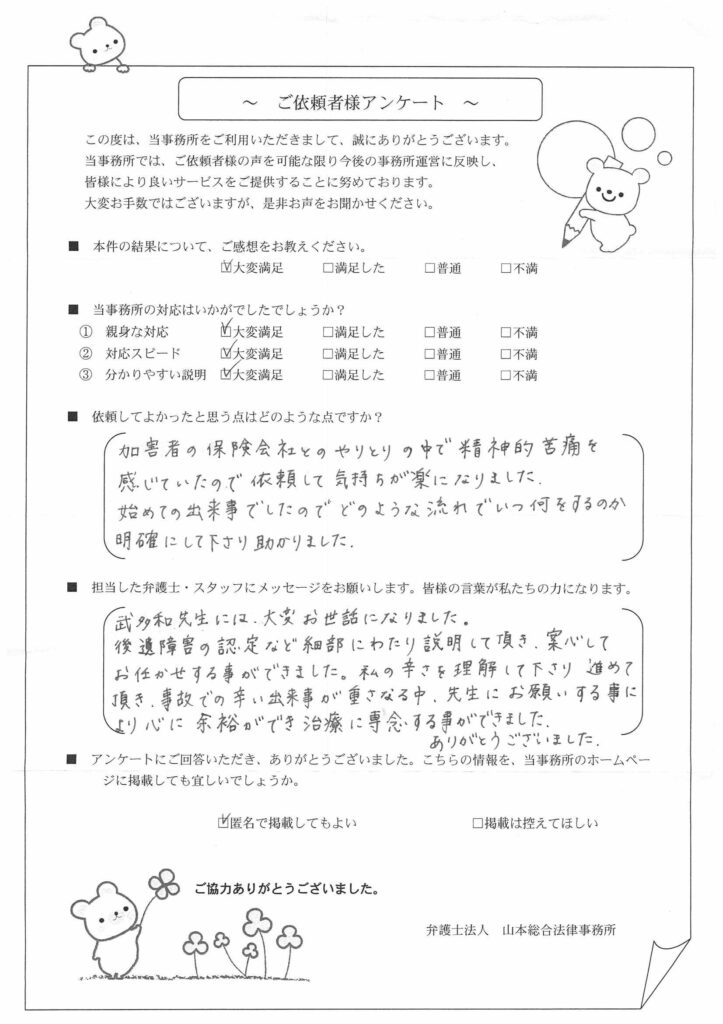 ～ ご依頼者様アンケート ～
この度は、当事務所をご利用いただきまして、誠にありがとうございます。
当事務所では、ご依頼者様の声を可能な限り今後の事務所運営に反映し、
皆様により良いサービスをご提供することに努めております。
大変お手数ではございますが、是非お声をお聞かせください。
■ 本件の結果について、ご感想をお教えください。
☑大変満足 □満足した □普通 □不満
■ 当事務所の対応はいかがでしたでしょうか？
① 親身な対応 ☑大変満足 □満足した □普通 □不満
② 対応スピード ☑大変満足 □満足した □普通 □不満
③ 分かりやすい説明 ☑大変満足 □満足した □普通 □不満
■ 依頼してよかったと思う点はどのような点ですか？
加害者の保険会社とのやりとりの中で精神的苦痛を
感じていたので依頼して気持ちが楽になりました.
始めての出来事でしたのでどのような流れでいつ何をするのか
明確にして下さり助かりました.
■ 担当した弁護士・スタッフにメッセージをお願いします。皆様の言葉が私たちの力になります。
武多和先生には、大変お世話になりました。
後遺障害の認定など細部にわたり説明して頂き、案心して
お任かせする事ができました。私の辛さを理解して下さり 進めて
頂き、事故での辛い出来事が重さなる中、先生にお願いする事に
より心に 余裕ができ治療に専念する事ができました.
ありがとうございました.
■ アンケートにご回答いただき、ありがとうございました。こちらの情報を、当事務所のホームペー
ジに掲載しても宜しいでしょうか。
☑匿名で掲載してもよい □掲載は控えてほしい
ご協力ありがとうございました。
弁護士法人 山本総合法律事務所